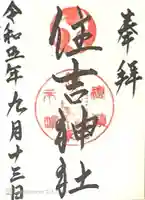 奉拝
住吉神社
令和五年九月十三日